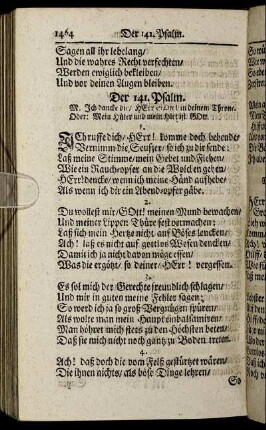 1464 Der 141. Psalm.
Sagen all ihr lebelang/
Und die wahres Recht verfechten/
Werden ewiglich bekleiben/
Und vor deinen Augen bleiben.
Der 141. Psalm.
M. Ich dancke dir/ HErr GOtt in deinem Throne.
Oder: Mein Hüter und mein Hirt ist GOtt.
1.
ICh ruffe dich/ HErr! komme doch behende/
Vernimm die Seufzer/ so ich zu dir sende:
Laß meine Stimme/ mein Gebet und Flehen/
Wie ein Rauchopfer an die Wolcken gehen/
HErr! dencke/ wenn ich meine Händ aufhebe/
Als wenn ich dir ein Abendopfer gäbe.
2.
Du wollest mir/ GOtt! meinen Mund bewachen/
Und meiner Lippen Thüre fest vermachen:
Laß sich mein Hertz nicht auf Böses lencken/
Ach! laß es nicht auf gottlos Wesen dencken/
Damit ich ja nicht davon möge essen/
Was die ergötz/ so deiner/ HErr! vergessen.
3.
Es sol mich der Gerechte freundlich schlagen/
Und mir in guten meine Fehler sagen;
So werd ich ja so groß Vergnügen spüren/
Als wolte man mein Haupt einbalsamiren/
Man höhret mich stets zu den Höchsten beten/
Daß sie mich nicht noch gantz zu Boden treten.
4.
Ach! daß doch die vom Felß gestürtzet wären/
Die ihnen nichts/ als böse Dinge lehren/
So